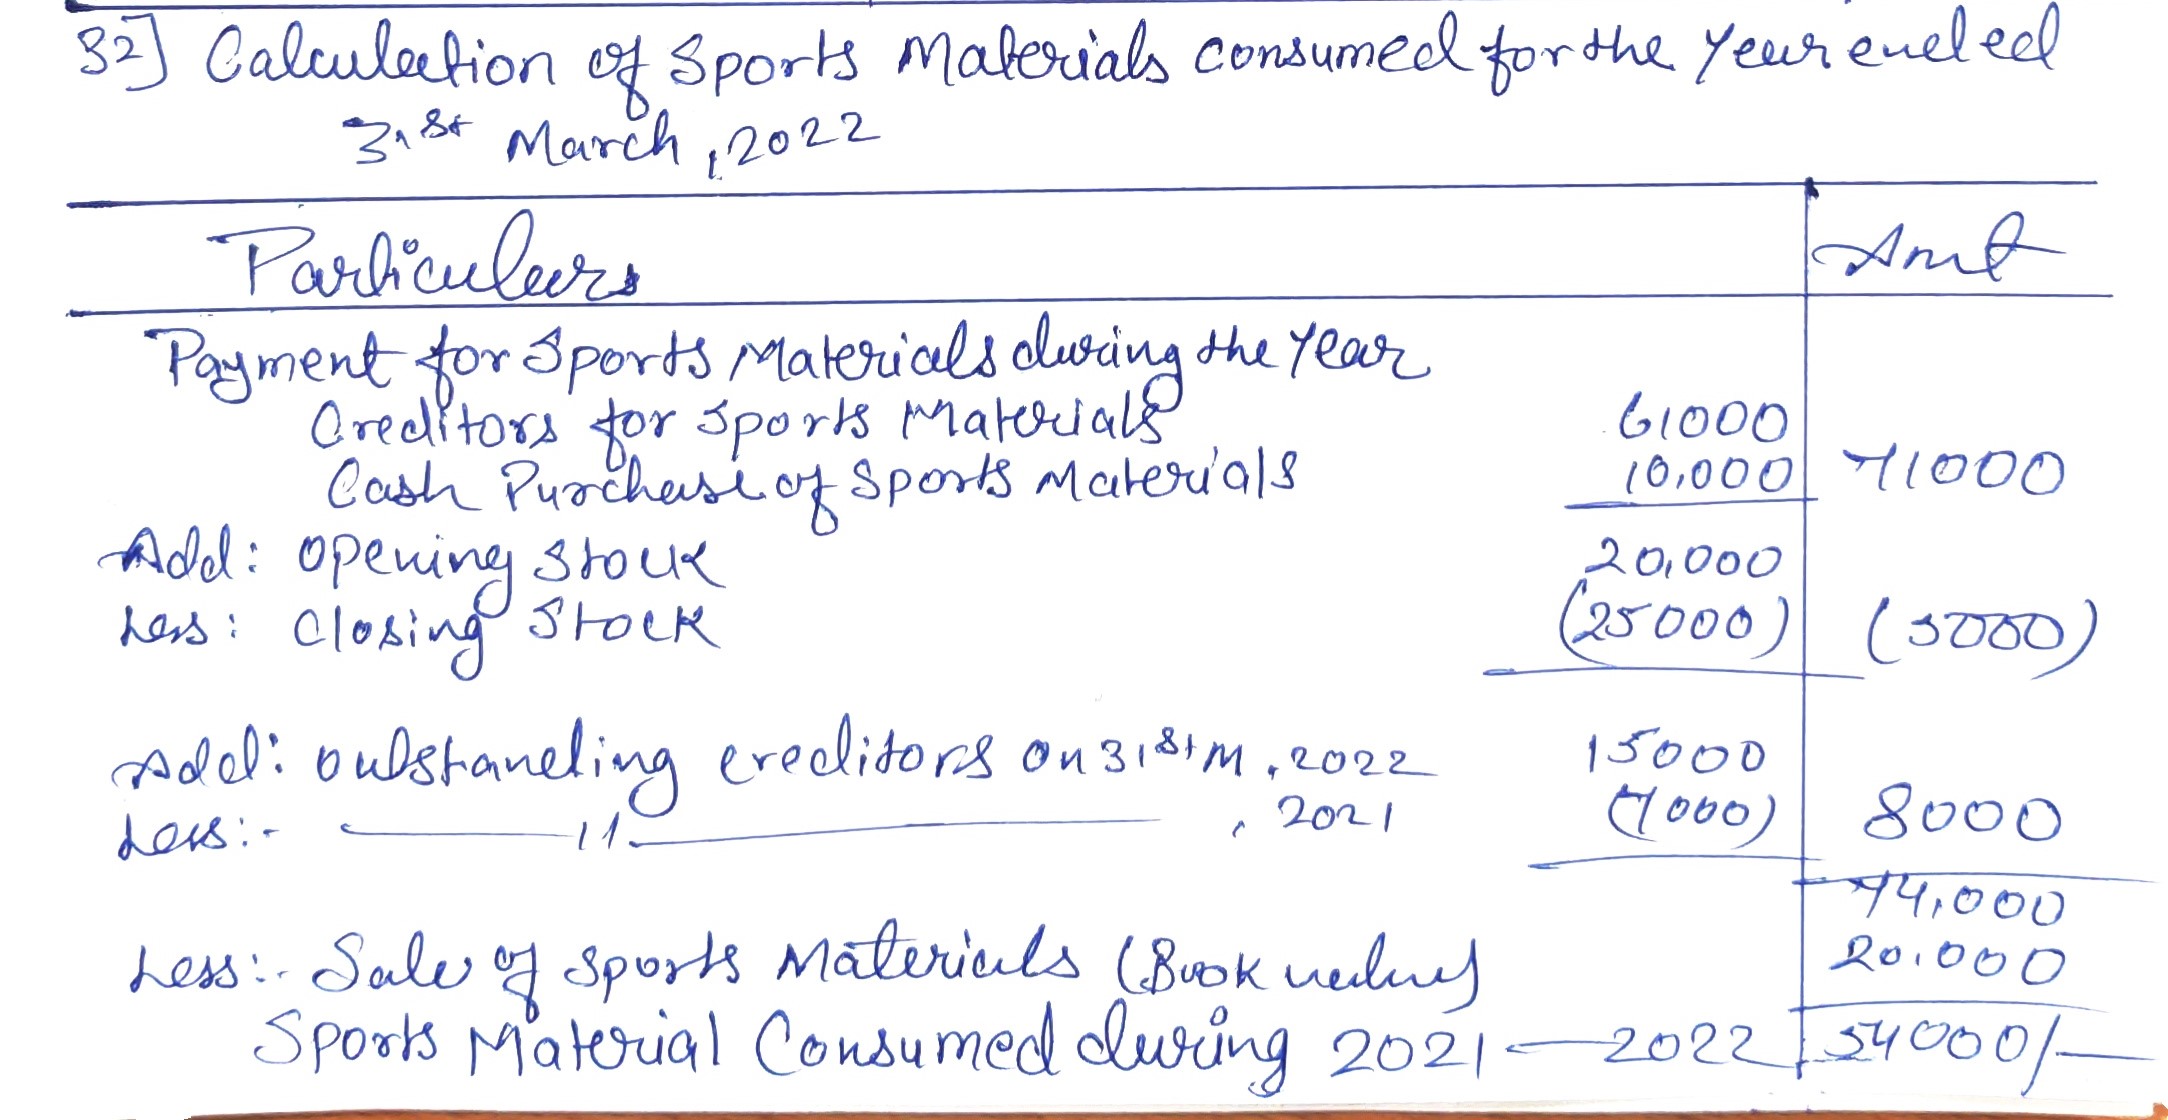 32] Calculation of Sports Materials consumed for the Year ended
31st March, 2022
Particulars Amt
Payment for Sports Materials during the Year
Creditors for Sports Materials 61000
Cash Purchase of Sports Materials 10,000 71000
Add: Opening Stock 20,000
Less: Closing Stock (25000) (5000)
Add: outstanding creditors on 31st M, 2022 15000
Less:- —————11————— , 2021 (7000) 8000
74,000
Less:- Sale of Sports Materials (Book value) 20,000
Sports Material Consumed during 2021—2022 54000/-